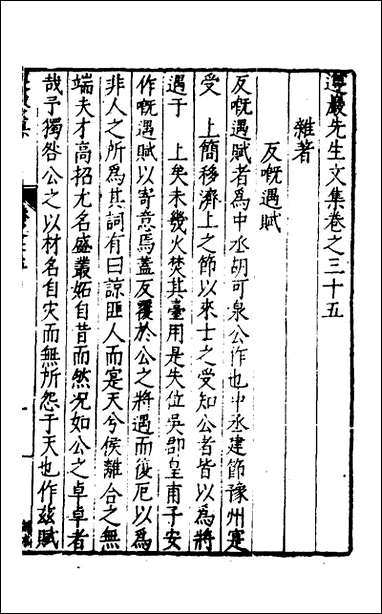 遵巖先生文集卷之三十五
雜著
反嘅遇賦
反嘅遇賦者為中丞胡可泉公作也中丞建節豫州寔
受　上簡移濟上之節以來士之受知公者皆以為將
遇于　上矣未幾火焚其臺用是失位吳郡皇甫子安
作嘅遇賦以寄意焉蓋反覆於公之將遇而復厄以為
非人之所為其詞有曰諒匪人而寔天兮侯離合之無
端夫才高招尤名盛叢妬自昔而然况如公之卓卓者
哉予獨咎公之以材名自灾而無所怨于天也作茲賦